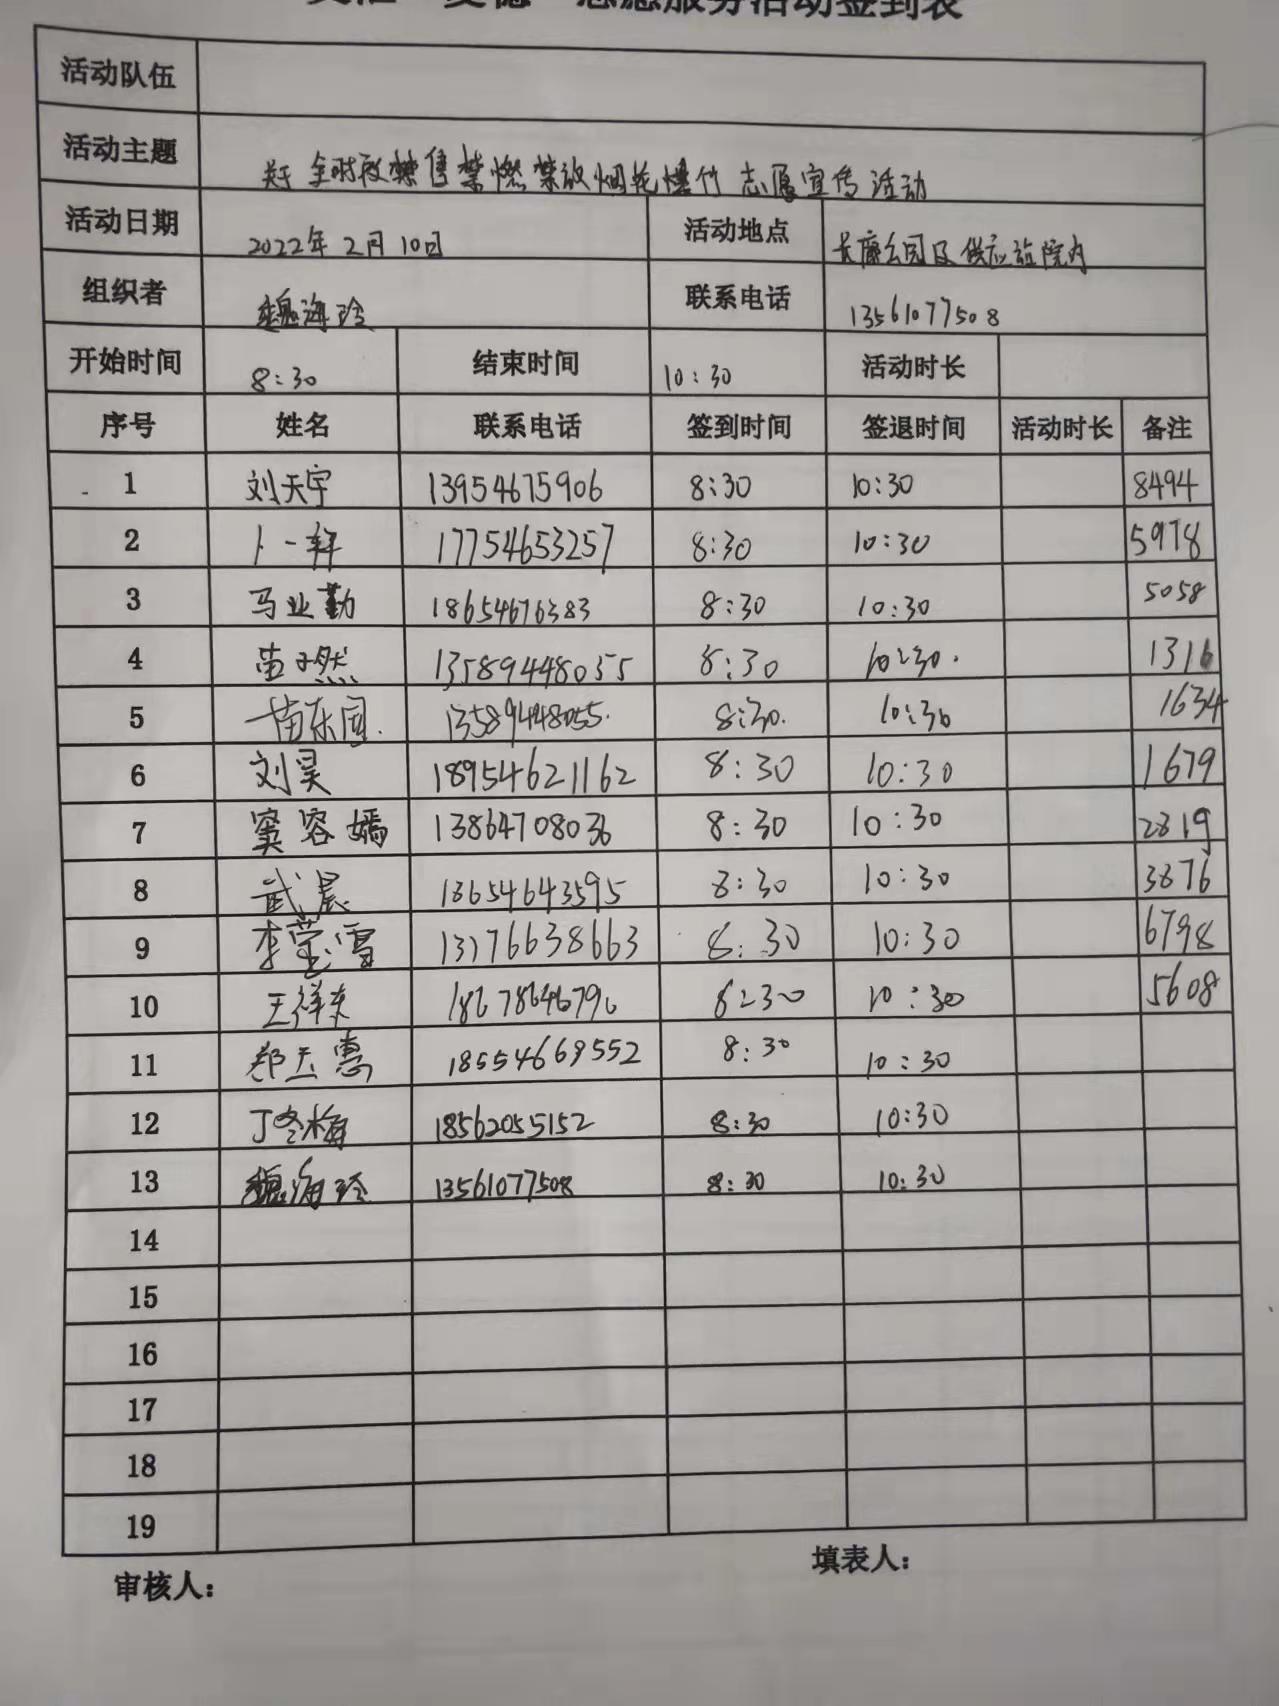 志愿服务活动签到表
活动队伍
活动主题 关于全时段禁售禁燃禁放烟花爆竹志愿宣传活动
活动日期 2022年2月10日 活动地点 长康公园及供应站院内
组织者 魏海玲 联系电话 13561077508
开始时间 8:30 结束时间 10:30 活动时长
序号 姓名 联系电话 签到时间 签退时间 活动时长 备注
1 刘天宇 13954675906 8:30 10:30 8494
2 卜一轩 17754653257 8:30 10:30 5978
3 马业勤 18654676383 8:30 10:30 5058
4 苗子然 13589448055 8:30 10:30. 1316
5 苗东园. 13589448055. 8:30. 10:30 1634
6 刘昊 18954621162 8:30 10:30 1679
7 窦容嫣 13864708036 8:30 10:30 2819
8 武晨 13654643595 8:30 10:30 3876
9 李莹雪 13176638663 8:30 10:30 6798
10 王祥东 18678646796 8:30 10:30 5608
11 郑玉惠 18554669552 8:30 10:30
12 丁冬梅 18562055152 8:30 10:30
13 魏海玲 13561077508 8:30 10:30
14
15
16
17
18
19
审核人： 填表人：